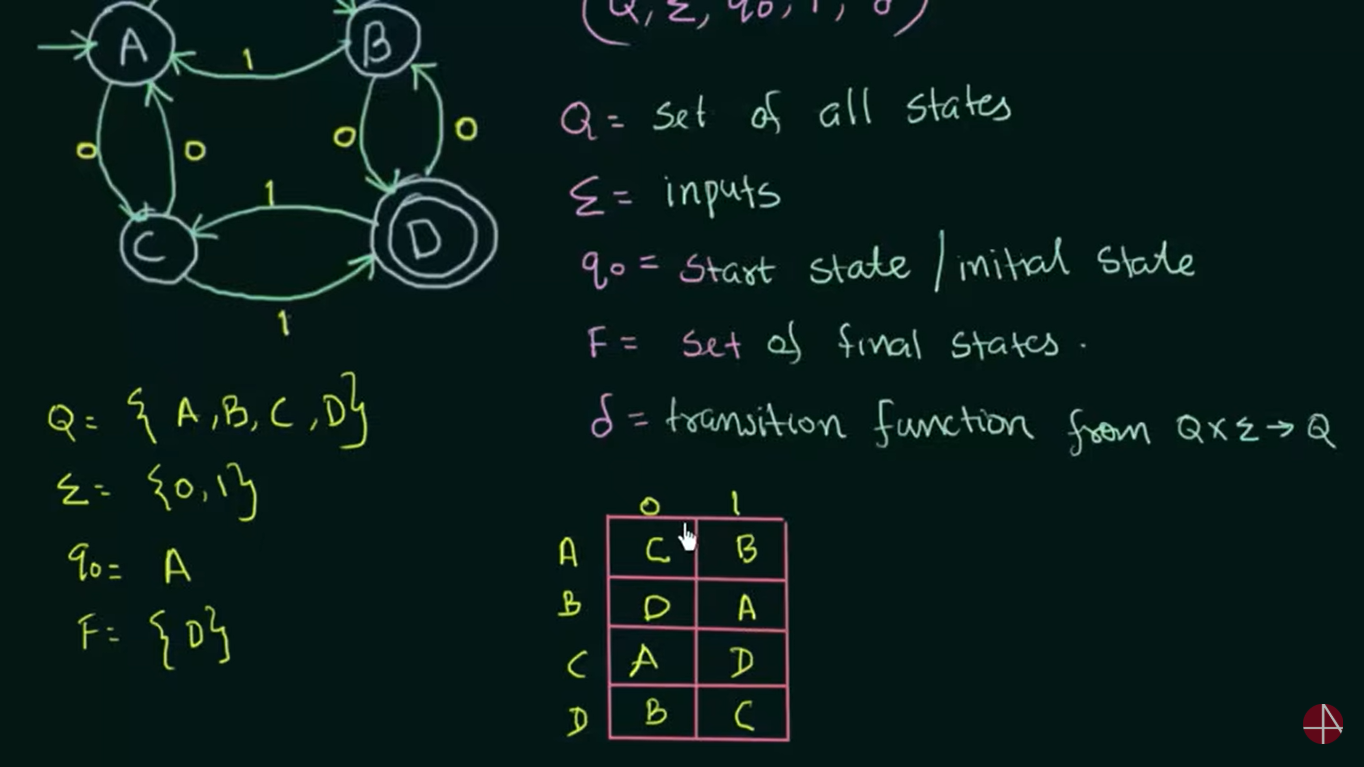 (Q, Σ, q0, F, δ)
A
B
1
0
0
0
0
1
C
D
1
Q = set of all states
Σ = inputs
q0 = start state / initial state
F = set of final states.
δ = transition function from Q×Σ → Q
Q = {A, B, C, D}
Σ = {0, 1}
q0 = A
F = {D}
0 1
A C B
B D A
C A D
D B C